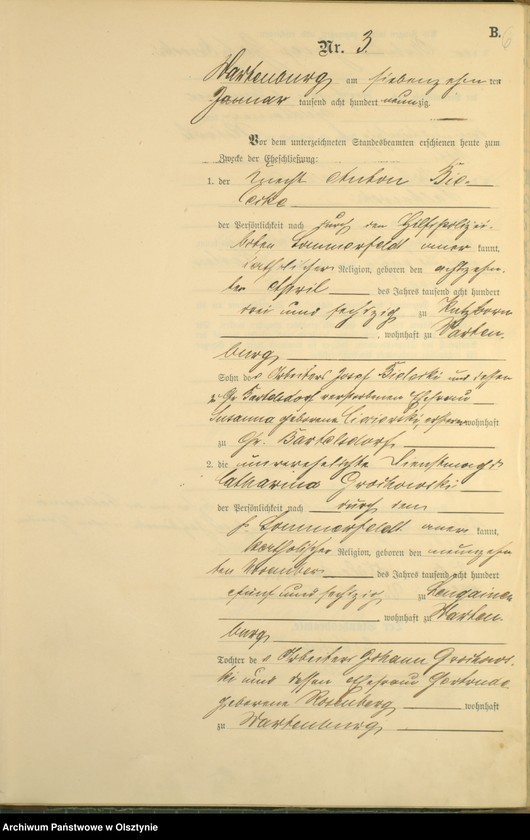 B.
Nr. 3.
Wartenburg am siebenzehnten
Januar tausend acht hundert neunzig.
Vor dem unterzeichneten Standesbeamten erschienen heute zum
Zwecke der Eheschließung:
1. der Knecht Anton Bie-
der Persönlichkeit nach durch den Hilfspolizei-
boten Sommerfeldt aner kannt,
katholischer Religion, geboren den achtzehn-
ten April des Jahres tausend acht hundert
drei und sechszig zu
, wohnhaft zu Warten-
burg
Sohn des Arbeiters Josef und dessen
zu Gr. Bartelsdorf verstorbenen Ehefrau
Susanna geborene wohnhaft
zu Gr. Bartelsdorf
2. die unverehelichte Dienstmagd
Catharina Grodhowski
der Persönlichkeit nach durch den
p. Sommerfeldt aner kannt,
katholischer Religion, geboren den neunzehn-
ten November des Jahres tausend acht hundert
fünf und sechszig zu Lengainen
wohnhaft zu Warten-
burg
Tochter des Arbeiters Johann Grodhows-
ki und dessen Ehefrau Gertrude
geborene Rosenberg wohnhaft
zu Wartenburg
Archiwum Państwowe w Olsztynie